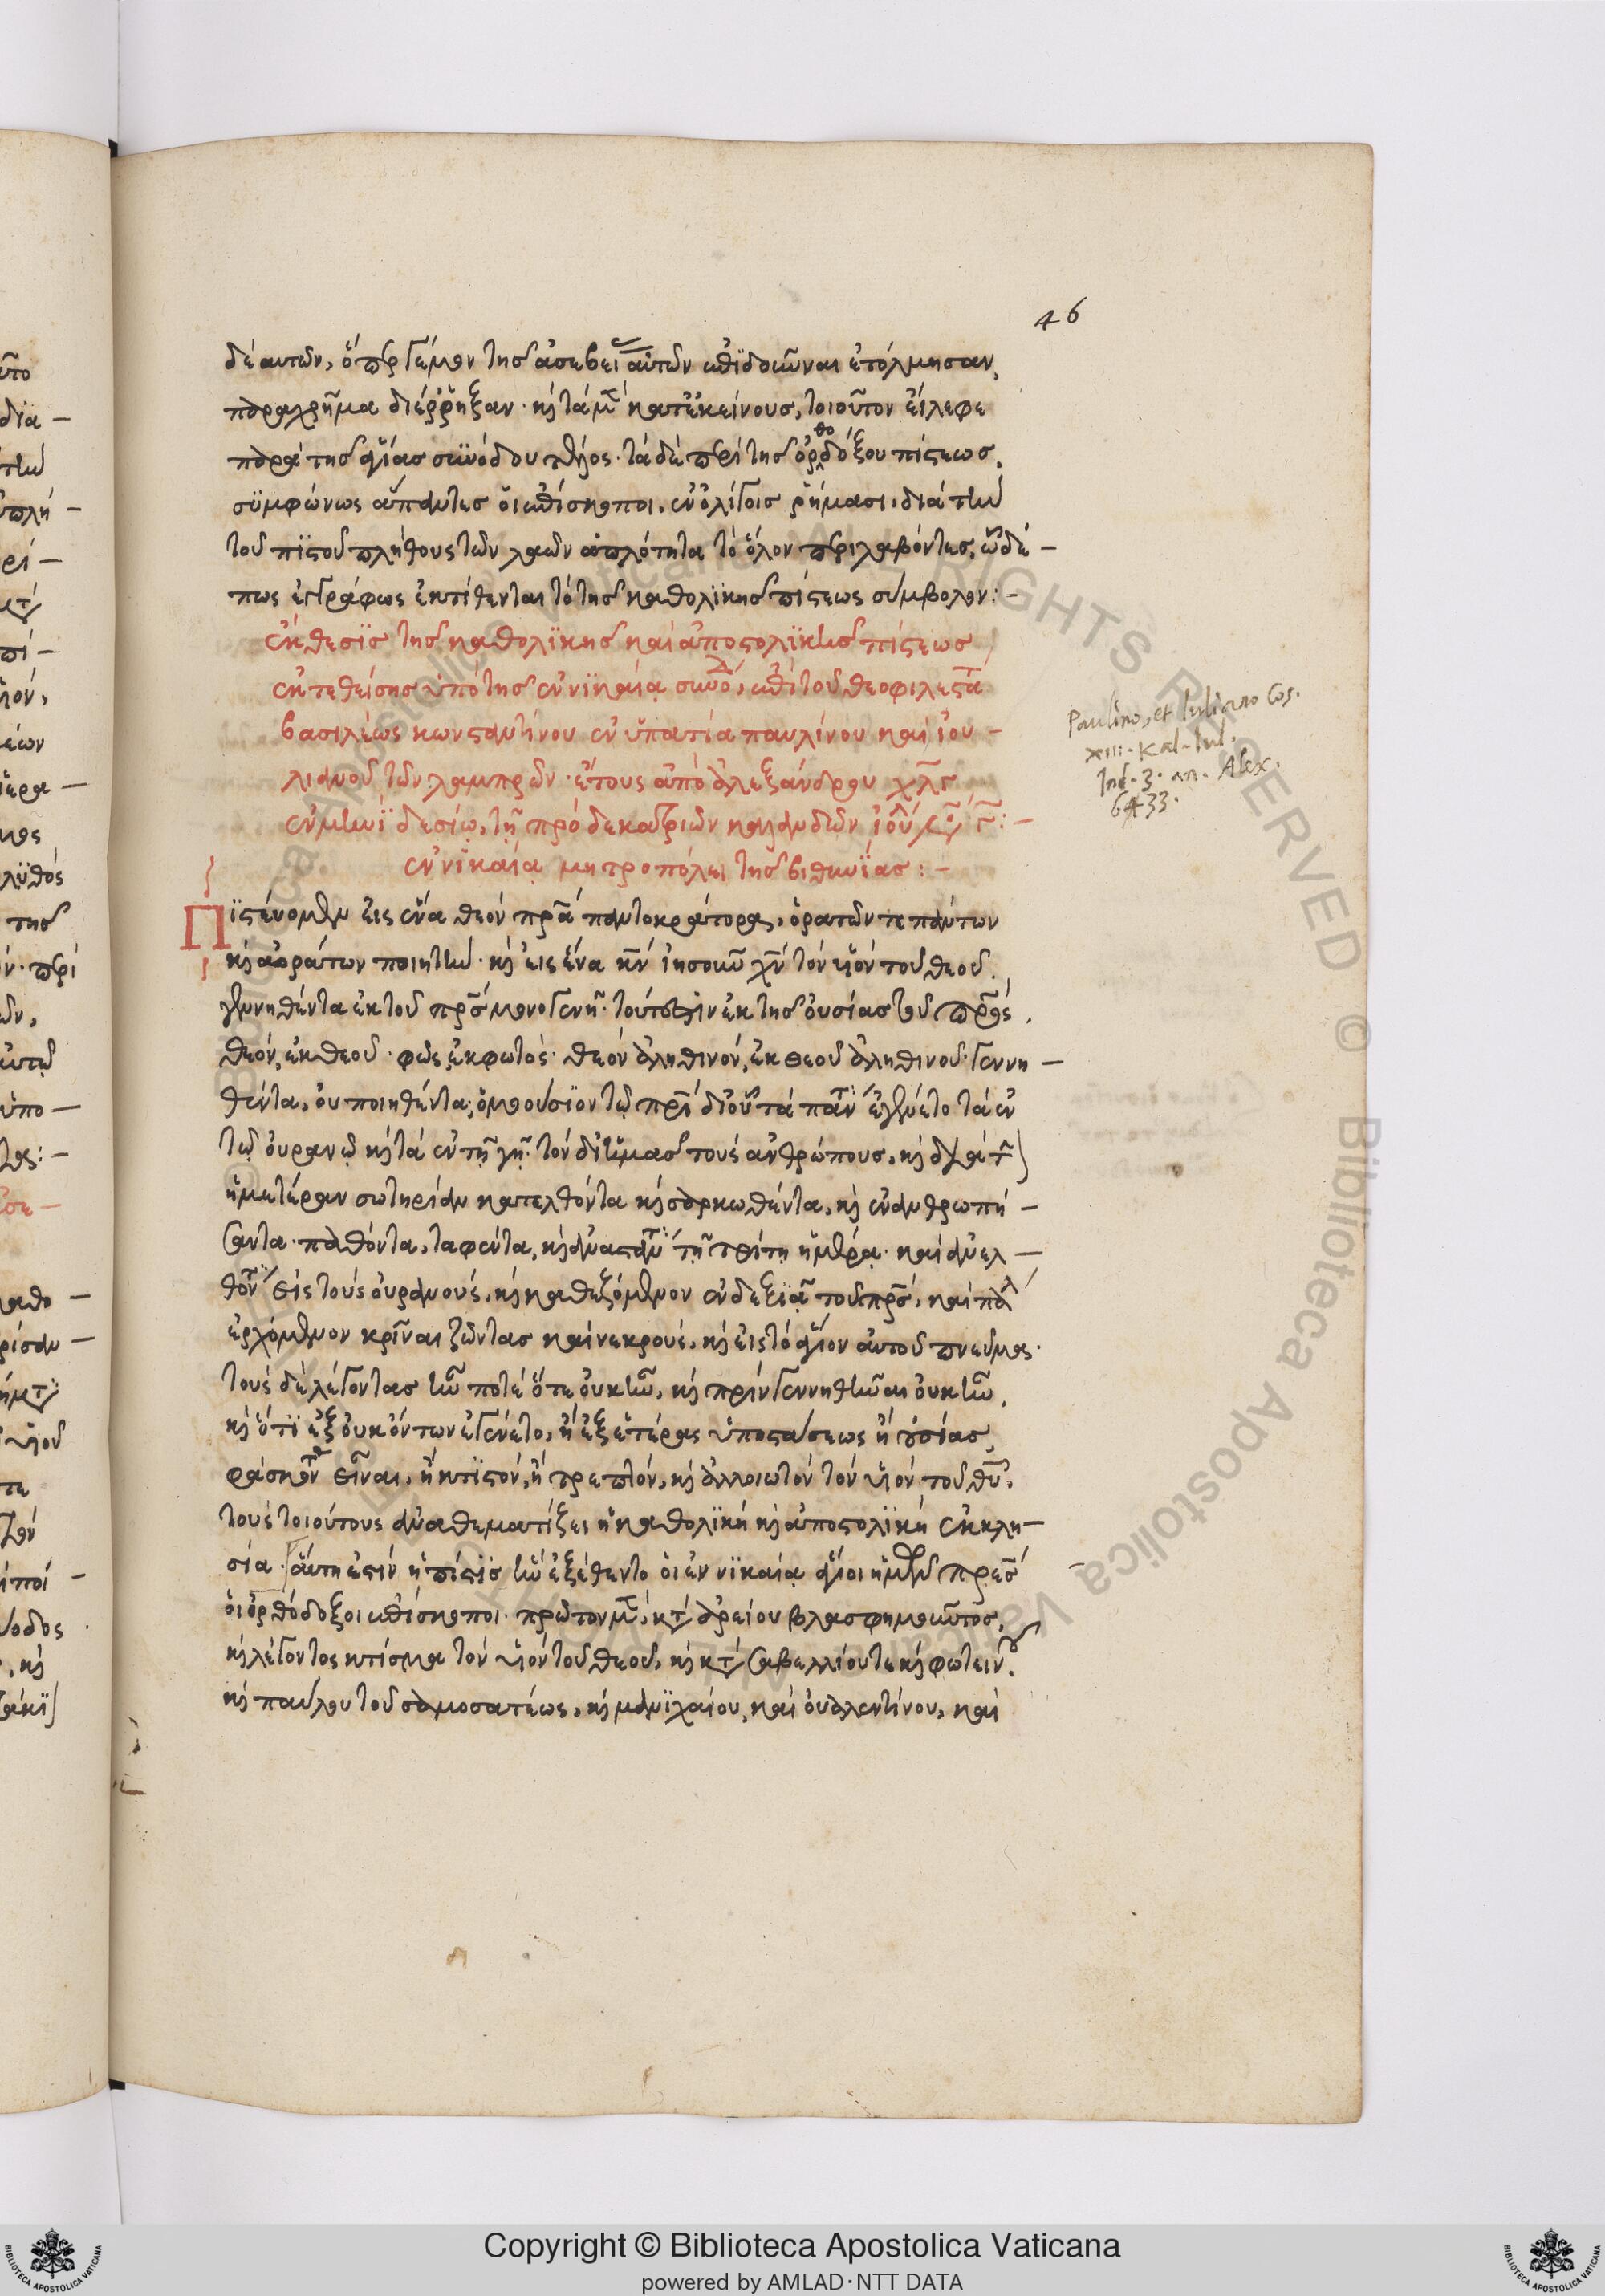 46
δὲ αυτῶν, ὅπερ γέμον τῆς ἀσεβεί αὐτῶν ἐπιδοῦναι ἐτόλμησαν,
παραχρῆμα διέρρηξαν· κὶ τὰ μ κατ' ἐκείνους, τοιοῦτον εἴληφε
παρὰ τῆς ἁγίας συνόδου τέλος· τὰ δὲ περὶ τῆς ὀρθοδόξου πίστεως,
συμφώνως ἅπαντες ὁι ἐπίσκοποι, ἐν ὀλίγοις ῥήμασι, διὰ τὴν
τοῦ πιστοῦ πλήθους τῶν λαῶν ἁπλότητα τὸ ὅλον περιλαβόντες, ὧδέ —
πως ἐγγράφως ἐκτίθενται τὸ τῆς καθολικῆς πίστεως σύμβολον: -
ἔκθεσις τῆς καθολικῆς καὶ ἀποστολικῆς πίστεως
ἐκτεθείσης ὑπὸ τῆς ἐν νικαίᾳ συνό, ἐπὶ τοῦ θεοφιλεστά
βασιλέως κωνσταντίνου ἐν ὑπατίᾳ παυλίνου καὶ ἰου -
λιανοῦ τῶν λαμπρῶν· ἔτους ἀπὸ ἀλεξάνδρου χλς
ἐν μηνὶ δεσίῳ, τῇ πρὸ δεκατριῶν καλανδῶν ἰου : -
ἐν νικαίᾳ μητροπόλει τῆς βιθυνίας : -
Πιστεύομεν εἰς ἕνα θεὸν πρα παντοκράτορα, ὁρατῶν τε πάντων
κὶ ἀοράτων ποιητήν· κὶ εἰς ἕνα κν ἰησοῦν χν τὸν υἱὸν τοῦ θεοῦ,
γεννηθέντα ἐκ τοῦ πρς μονογενῆ· τουτέστιν ἐκ τῆς οὐσίας τοῦ πρς,
θεὸν ἐκ θεοῦ· φῶς ἐκ φωτός· θεὸν ἀληθινὸν, ἐκ θεοῦ ἀληθινοῦ· γεννη —
θέντα, οὐ ποιηθέντα, ὁμοούσιον τῷ πρι δι' οὗ τὰ παν ἐγένετο τὰ ἐν
τῷ οὐρανῷ κὶ τὰ ἐν τῇ γῇ· τὸν δι' ἡμᾶς τοὺς ἀνθρώπους, κὶ διὰ τ
ἡμετέραν σωτηρίαν κατελθόντα κὶ σαρκωθέντα, κὶ ἐνανθρωπή —
σαντα· παθόντα, ταφέντα, κὶ ἀναστάν τῇ τρίτῃ ἡμέρᾳ· καὶ ἀνελ —
θόν εἰς τοὺς οὐρανούς, κὶ καθεζόμενον ἐν δεξιᾷ τοῦ πρς, καὶ πάλ
ἐρχόμενον κρῖναι ζῶντας καὶ νεκρούς, κὶ εἰς τὸ ἅγιον ἀυτοῦ πνεῦμα·
τοὺς δὲ λέγοντας ἦν ποτὲ ὅτε οὐκ ἦν, κὶ πρὶν γεννηθῆναι οὐκ ἦν,
κὶ ὅτι ἐξ οὐκ ὄντων ἐγένετο, ἢ ἐξ ἑτέρας ὑποστάσεως ἢ οὐσίας,
φάσκον εἶναι, ἢ κτιστὸν, ἢ τρεπτὸν, κὶ ἀλλοιωτὸν τὸν υἱὸν τοῦ θυ,
τοὺς τοιούτους ἀναθεματίζει ἡ καθολικὴ κὶ ἀποστολικὴ ἐκκλη —
σία· αὕτη ἐστὶν ἡ πίστις ἣν ἐξέθεντο ὁι ἐν νικαίᾳ ἅγιοι ἡμῶν πρες
ὁι ὀρθόδοξοι ἐπίσκοποι· πρῶτον μ, κτ ἀρείου βλασφημοῦντος,
κὶ λέγοντος κτίσμα τὸν υἱὸν τοῦ θεοῦ, κὶ κτ σαβελλίου τε κὶ φωτειν
κὶ παύλου τοῦ σαμοσατέως, κὶ μανιχαίου, καὶ οὐαλεντίνου, καὶ
Paulino, et Iuliano Cos.
XIII · Kal · Iul.
Ind · 3 · an. Alex.
6433.
Copyright © Biblioteca Apostolica Vaticana
powered by AMLAD·NTT DATA